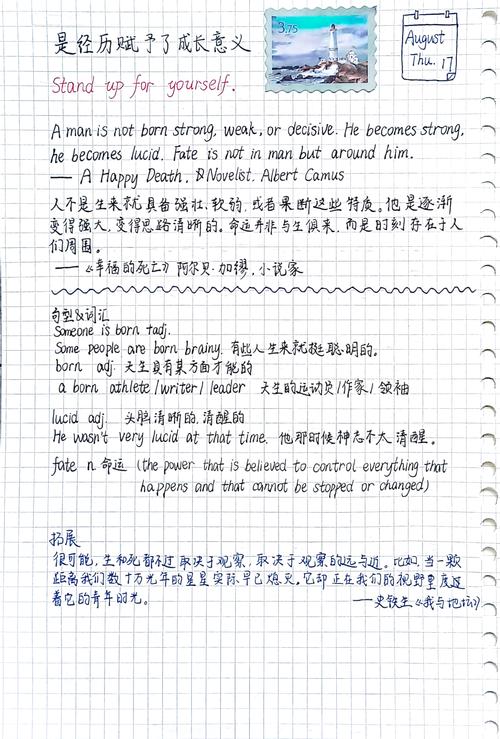 是经历赋予了成长意义
3.75
August
Thu. 17
Stand up for yourself.
A man is not born strong, weak, or decisive. He becomes strong,
he becomes lucid. Fate is not in man but around him.
— A Happy Death, Novelist, Albert Camus
人不是生来就具备强壮、软弱,或者果断这些特质。他是逐渐
变得强大,变得思路清晰的。命运并非与生俱来,而是时刻存在于人
们周围。
——《幸福的死亡》阿尔贝·加缪,小说家
句型&词汇
Someone is born +adj.
Some people are born brainy. 有些人生来就挺聪明的。
born adj. 天生具有某方面才能的
a born athlete / writer / leader 天生的运动员/作家/领袖
lucid adj. 头脑清晰的,清醒的
He wasn't very lucid at that time. 他那时候神志不太清醒。
fate n. 命运 (the power that is believed to control everything that
happens and that cannot be stopped or changed)
拓展
很可能,生和死都不过取决于观察,取决于观察的远与近。比如,当一颗
距离我们数十万光年的星星实际早已熄灭,它却正在我们的视野里度过
着它的青年时光。
——史铁生《我与地坛》